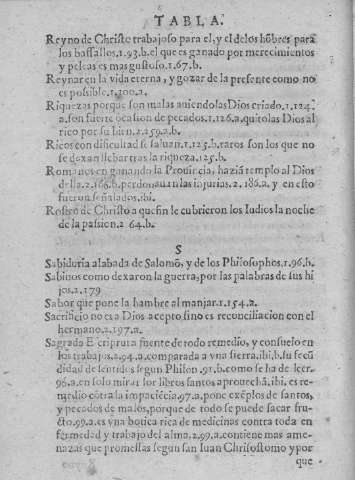 TABLA.
Reyno de Christo trabajoso para el, y el de los hõbres para
los bassallos.1.93.b.el que es ganado por merecimientos
y peleas es mas gustoso.1.67.b.
Reynar en la vida eterna, y gozar de la presente como no
es possible.1.200.a.
Riquezas porque son malas auiendolas Dios criado.1.124.
a.son fuerte ocasion de pecados.1.126.a.quitolas Dios al
rico por su bien.2.259.a.b.
Ricos con dificultad se saluan.1.125.b.raros son los que no
se dexan llebar tras la riqueza.125.b.
Romanos en ganando la Prouincia, haziã templo al Dios
della.2.186.b.perdonauan las injurias.2.186.a. y en esto
fueron señalados.ibi.
Rostro de Christo a que fin le cubrieron los Iudios la noche
de la passion.2 64.b.
S
Sabiduria alabada de Salomõ, y de los Philosophos.1.96.b.
Sabinos como dexaron la guerra, por las palabras de sus hi
jos.2.179
Sabor que pone la hambre al manjar.1.154.a.
Sacrificio no es a Dios acepto sino es reconciliacion con el
hermano.2.197.a.
Sagrada Escriptura fuente de todo remedio, y consuelo en
los trabajos.2.94.a.comparada a vna sierra.ibi.b.su fecũ
didad de sentidos segun Philon.91.b.como se ha de leer.
96.a.en solo mirar los libros santos aprouechã.ibi.es re-
medio cõtra la impaciẽcia.97.a.pone exẽplos de santos,
y pecados de malos, porque de todo se puede sacar fru-
cto.99.a.es vna botica rica de medicinas contra toda en
fermedad y trabajo del alma.2.99.a.contiene mas ame-
nazas que promessas segun san Iuan Chrisostomo y por
que